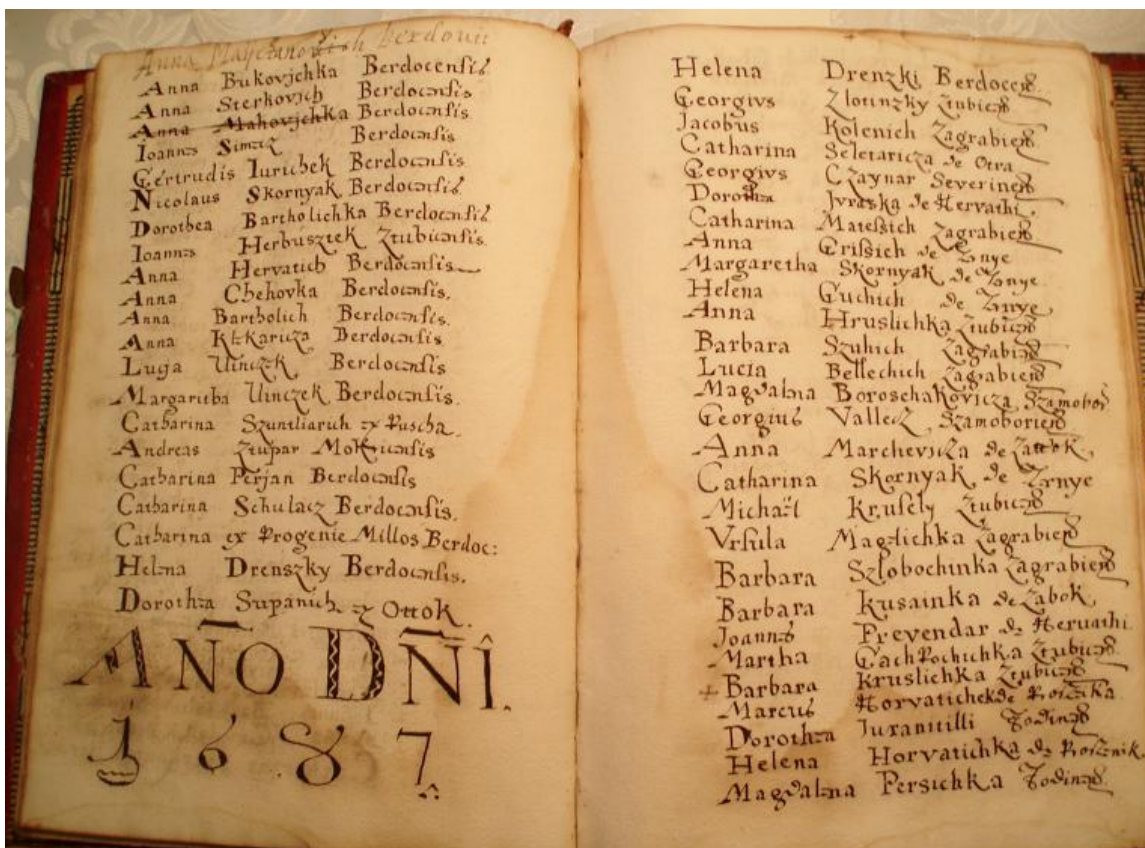 Anna
Anna Bukovjchka Berdocensis
Anna Sterkovich Berdocensis
Anna Mahovjchka Berdocensis
Joannes Berdocensis
Gertrudis Iurichek Berdocensis
Nicolaus Skornyak Berdocensis
Dorothea Bartholichka Berdocensis
Joannes Herbusztek Ztubicensis
Anna Hervatich Berdocensis
Anna Chehovka Berdocensis.
Anna Bartholich Berdocensis.
Anna Berdocensis
Luçia Uinczek Berdocensis
Margaritha Uinczek Berdocensis.
Catharina ex Puscha.
Andreas Ztupar
Catharina Perjan Berdocensis
Catharina Schulacz Berdocensis.
Catharina ex Progenie Millos Berdoc:
Helena Drenszky Berdocensis.
Dorothea Supanich ex Ottok.
AÑO DÑI.
1687.
Helena Drenzki Berdocens
Georgivs Zlotinzky Ztubicens
Jacobus Kolenich Zagrabiens
Catharina Seletaricza de Otra
Georgivs Czaynar Severinens
Dorothea Jvraska de Hervathi.
Catharina Matessich Zagrabiens
Anna Grissich de
Margaretha Skornyak de
Helena Guchich de
Anna Hruslichka Ztubicens
Barbara Szuhich Zagrabiens
Lucia Bellechich Zagrabiens
Magdalena Boroschakovicza Szamobor
Georgius Vallecz Szamboriens
Anna Marchevszka de
Catharina Skornyak de
Michael Krusely Ztubicens
Vrsula Maglichka Zagrabiens
Barbara Szlobochinka Zagrabiens
Barbara Kusainka de Zabok,
Joannes Prevendar de Hervathi
Martha Ztubicens
+ Barbara Kruslichka Ztubicens
Marcus Horvatichek de
Dorothea
Helena Horvatichka de
Magdalena Persichka